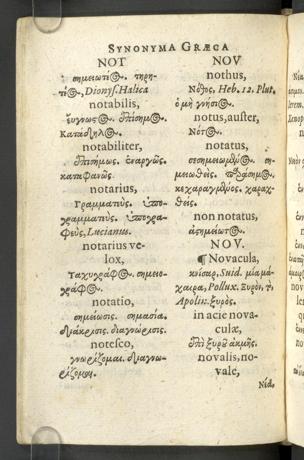 SYNONYMA GRÆCA
NOT
σημειωτέ☉. τηρη-
τέ☉, Dionys. Halica
notabilis,
ἔυγνως☉. ἐπίσημ☉.
Κατάδηλ☉.
notabiliter,
ἐπισήμως. ἐναργῶς.
καταφανῶς
notarius,
Γραμματεὺς. ὑπο-
γραμματεὺς. ὑπογρα-
φεὺς, Lucianus.
notarius ve-
lox,
Ταχυγράφ☉. σημειο-
γράφ☉.
notatio,
σημείωσις. σημασία.
διάκρισις. διαγνώρισις.
notesco,
γνωρίζομαι. διαγνω-
ρίζομαι.
NOV
nothus,
Νόθος, Heb. 12. Plut.
ὁ μὴ γνήσι☉.
notus, auster,
Νότ☉.
notatus,
σεσημειωμέν☉. ση-
μειωθεὶς.
κεχαραγμένος. χαραχ-
θείς.
non notatus,
ἀσημείωτ☉.
NOV.
¶ Novacula,
Suid. μία μά-
χαιρα, Pollux. Ξυρόν, τὸ
Apollin. ξυρὸς.
in acie nova-
culæ,
ἐπὶ ξυροῦ ἀκμῆς.
novalis, no-
vale,